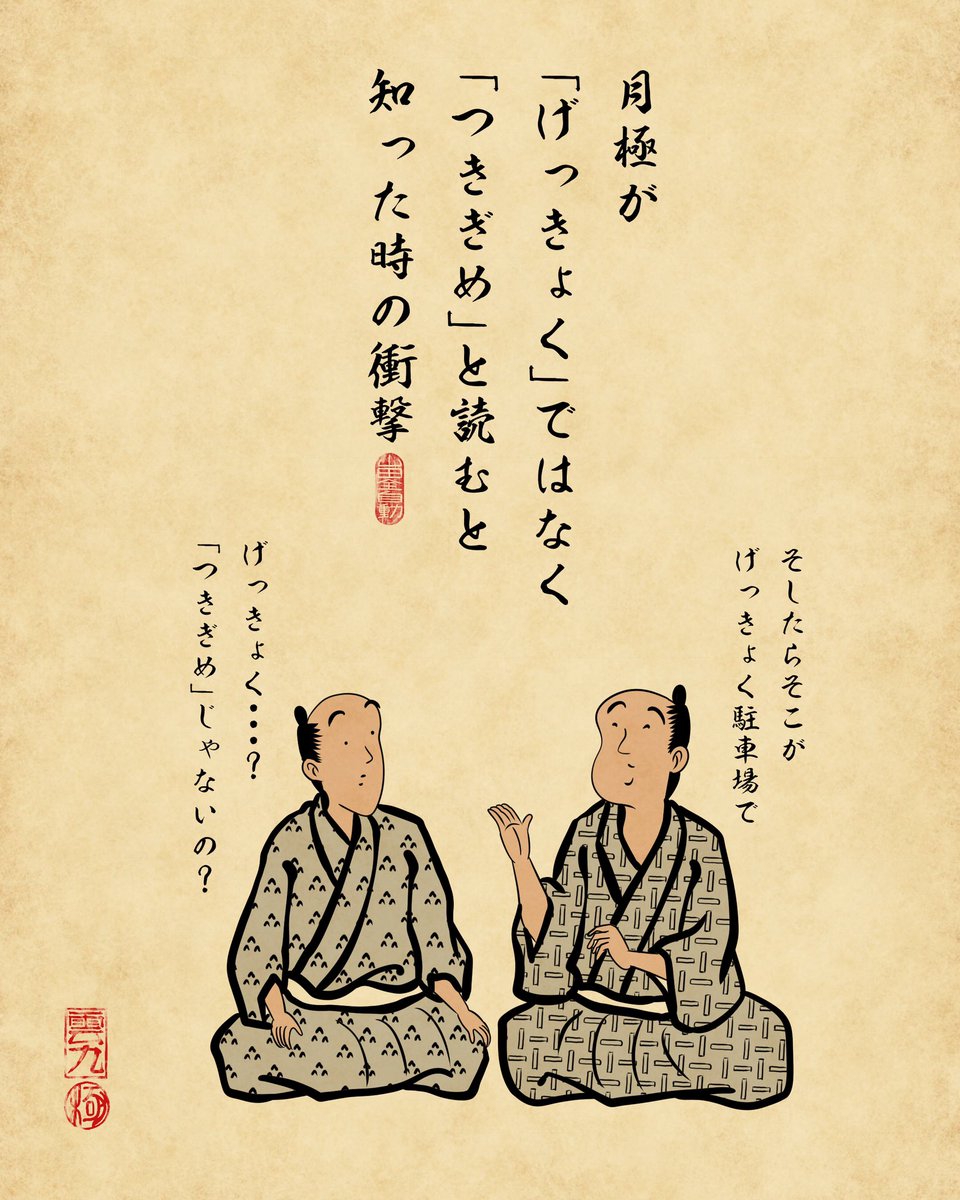 月極が
「げっきょく」ではなく
「つきぎめ」と読むと
知った時の衝撃
そしたらそこが
げっきょく駐車場で
げっきょく・・・?
「つきぎめ」じゃないの?